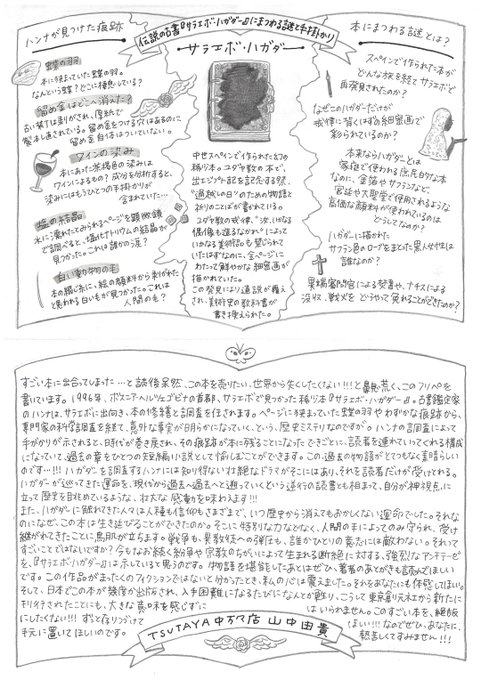 伝説の古書『サラエボ・ハガダー』にまつわる謎と手掛かり
サラエボ・ハガダー
ハンナが見つけた痕跡
蝶の羽
本にはさまっていた蝶の羽。
なんという蝶？どこに棲息している？
留め金はどこへ消えた？
古い装丁ははがされ、厚紙で
製本し直されている。留め金をつける穴はあるのに
留め金自体はついていない。
ワインの染み
本にあった茶褐色の染みは
ワインによるもの？成分を分析すると、
染みにはもうひとつの手掛かりが
含まれていた…
塩の結晶
水に濡れたとみられるページを顕微鏡
で調べると、塩化ナトリウムの結晶が
見つかった。これは誰かの涙？
白い動物の毛
本の綴じ糸に、絵の顔料から剥がれた
と思われる白い毛が見つかった。これは
人間の毛？
中世スペインで作られた幻の
稀少本。ユダヤ教の本で、
出エジプト記を記念する祭、
“過越しの日”のための物語と
祈りのことばが書かれている。
ユダヤ教の戒律、“汝、いかなる
偶像も造るなかれ”によって
いかなる美術品も禁じられて
いたはずなのに、全ページに
わたって鮮やかな細密画が
描かれていた。
この発見により通説が覆え
され、美術史の教科書が
書き換えられた。
本にまつわる謎とは？
スペインで作られた本が
どんな旅を経てサラエボで
再発見されたのか？
なぜこのハガダーだけが
戒律に背くはずの細密画で
彩られているのか？
本来ならハガダーとは
家庭で使われる庶民的な本
なのに、金箔やサフランなど、
宮廷や大聖堂で使用されるような
高価な顔料が使われているのは
どうしてなのか？
ハガダーに描かれた
サフラン色のローブをまとった黒人女性は
誰なのか？
異端審問官による焚書や、ナチスによる
没収、戦火をどうやって免れることができたのか？
すごい本に出合ってしまった…と読後呆然、この本を売りたい、世界から失くしたくない！！！と鼻息荒く、このフリペを
書いています。1996年、ボスニア・ヘルツェゴビナの首都、サラエボで見つかった稀少本『サラエボ・ハガダー』。古書鑑定家
のハンナは、サラエボに出向き、本の修繕と調査を任されます。ページに挟まっていた蝶の羽やわずかな痕跡から、
専門家の科学調査を経て、意外な事実が明らかになっていく、という、歴史ミステリなのですが。ハンナの調査によって
手がかりが示されると、時代が巻き戻され、その痕跡が本に残ることになったできごとに、読者を連れていってくれる構成
になっていて、過去の章をひとつの短編小説として愉しむことができます。この、過去の物語がとてつもなく素晴らしい
のです…！！！ハガダーを調査するハンナには知り得ない壮絶なドラマがそこにはあり、それを読者だけが受けとれる。
ハガダーが辿ってきた運命を、現代から過去へ過去へと遡っていくという逆行の読書とも相まって、自分が神視点に
立って歴史を眺めているような、壮大な感動を味わえます！！！
また、ハガダーに触れてきた人々は人種も信仰もさまざまで、いつ歴史から消えてもおかしくない運命でした。それな
のになぜ、この本は生き延びることができたのか。そこに特別な力などなく、人間の手によってのみ守られ、受け
継がれてきたことに鳥肌が立ちます。戦争も、異教徒への弾圧も、誰かひとりの意志には敵わない。それって
すごいことではないですか？今もなお続く紛争や宗教のちがいによって生まれる断絶に対する、強烈なアンチテーゼ
を、『サラエボ・ハガダー』は示していると思うのです。物語を堪能したあとはぜひ、著者のあとがきも読んでほしい
です。この作品がまったくのフィクションではないと分かったとき、私の心は震えました。それをあなたにも体感してほしい。
そして、日本でこの本が幾度か出版され、入手困難になるたびになんとか甦り、こうして東京創元社から新たに
刊行されたことにも、大きな意味を感じずにはいられません。このすごい本を、絶版
にしたくない！！！ずっと在りつづけてほしい！！！なのでぜひ、あなたに、
手元に置いてほしいのです。熱苦しくてすみません！！！
TSUTAYA中万々店 山中由貴